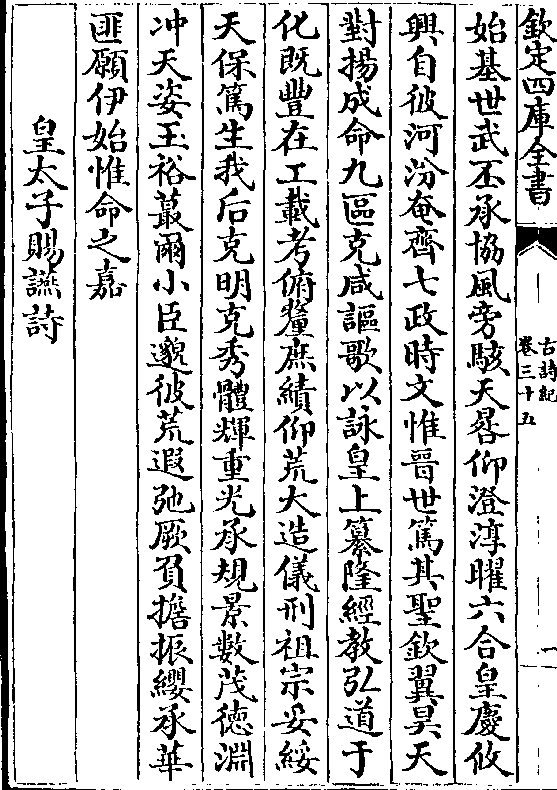 欽定四庫全書
古詩紀
卷三十五
一
始基世武丕承協風旁駭天晷仰澄淳曜六合皇慶攸
興自彼河汾奄齊七政時文惟晉世篤其聖欽翼昊天
對揚成命九區克咸謳歌以詠皇上纂隆經教弘道于
化既豐在工載考俯釐庶績仰荒大造儀刑祖宗妥綏
天保篤生我后克明克秀體輝重光承規景數茂德淵
沖天姿玉裕蕞爾小臣邈彼荒遐弛厥負擔振纓承華
匪願伊始惟命之嘉
皇太子賜讌詩